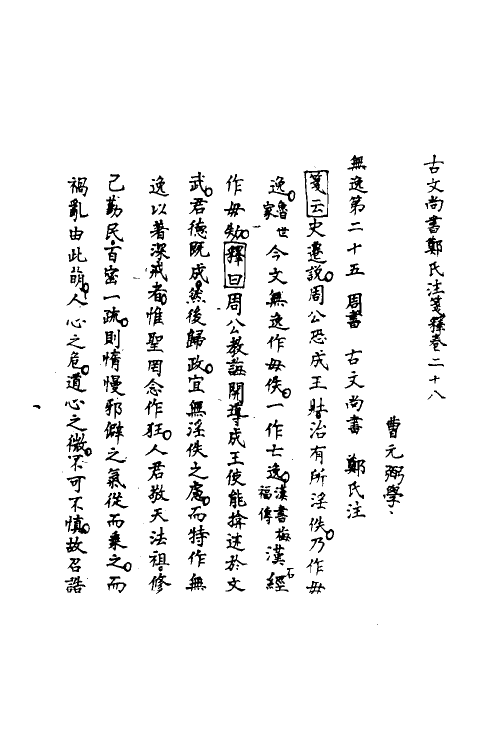 古文尚書鄭氏注箋釋卷二十八
曹元弼學
無逸第二十五 周書 古文尚書 鄭氏注
箋云史遷說周公恐成王壯治有所淫佚乃作毋
逸魯世家今文無逸作毋佚一作亡逸漢書梅福傳漢石經
作毋劮釋曰周公教誨開導成王使能揄述於文
武君德既成然後歸政宜無淫佚之慮而特作無
逸以著深戒者惟聖罔念作狂人君敬天法祖修
己勤民百密一疏則惰慢邪僻之氣從而乘之而
禍亂由此萌人心之危道心之微不可不慎故召誥